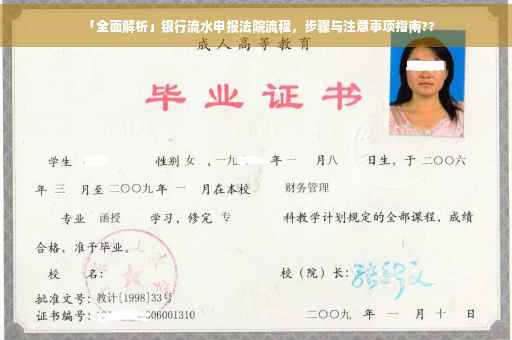 「全面解析」银行流水申报法院流程，步骤与注意事项指南??
成人高等教育
毕业证书
学生 性别 女 ，一九 年 一 月 八 日生，于 二〇〇六
年 三 月至 二〇〇九 年 一 月在本校 财务管理
专业 函授 学习，修完 专 科教学计划规定的全部课程，成绩
合格，准予毕业。
校 名： 校（院）长：
批准文号：教计[1998]33号
证书编号： 06001310 二〇〇九 年 一 月 十 日